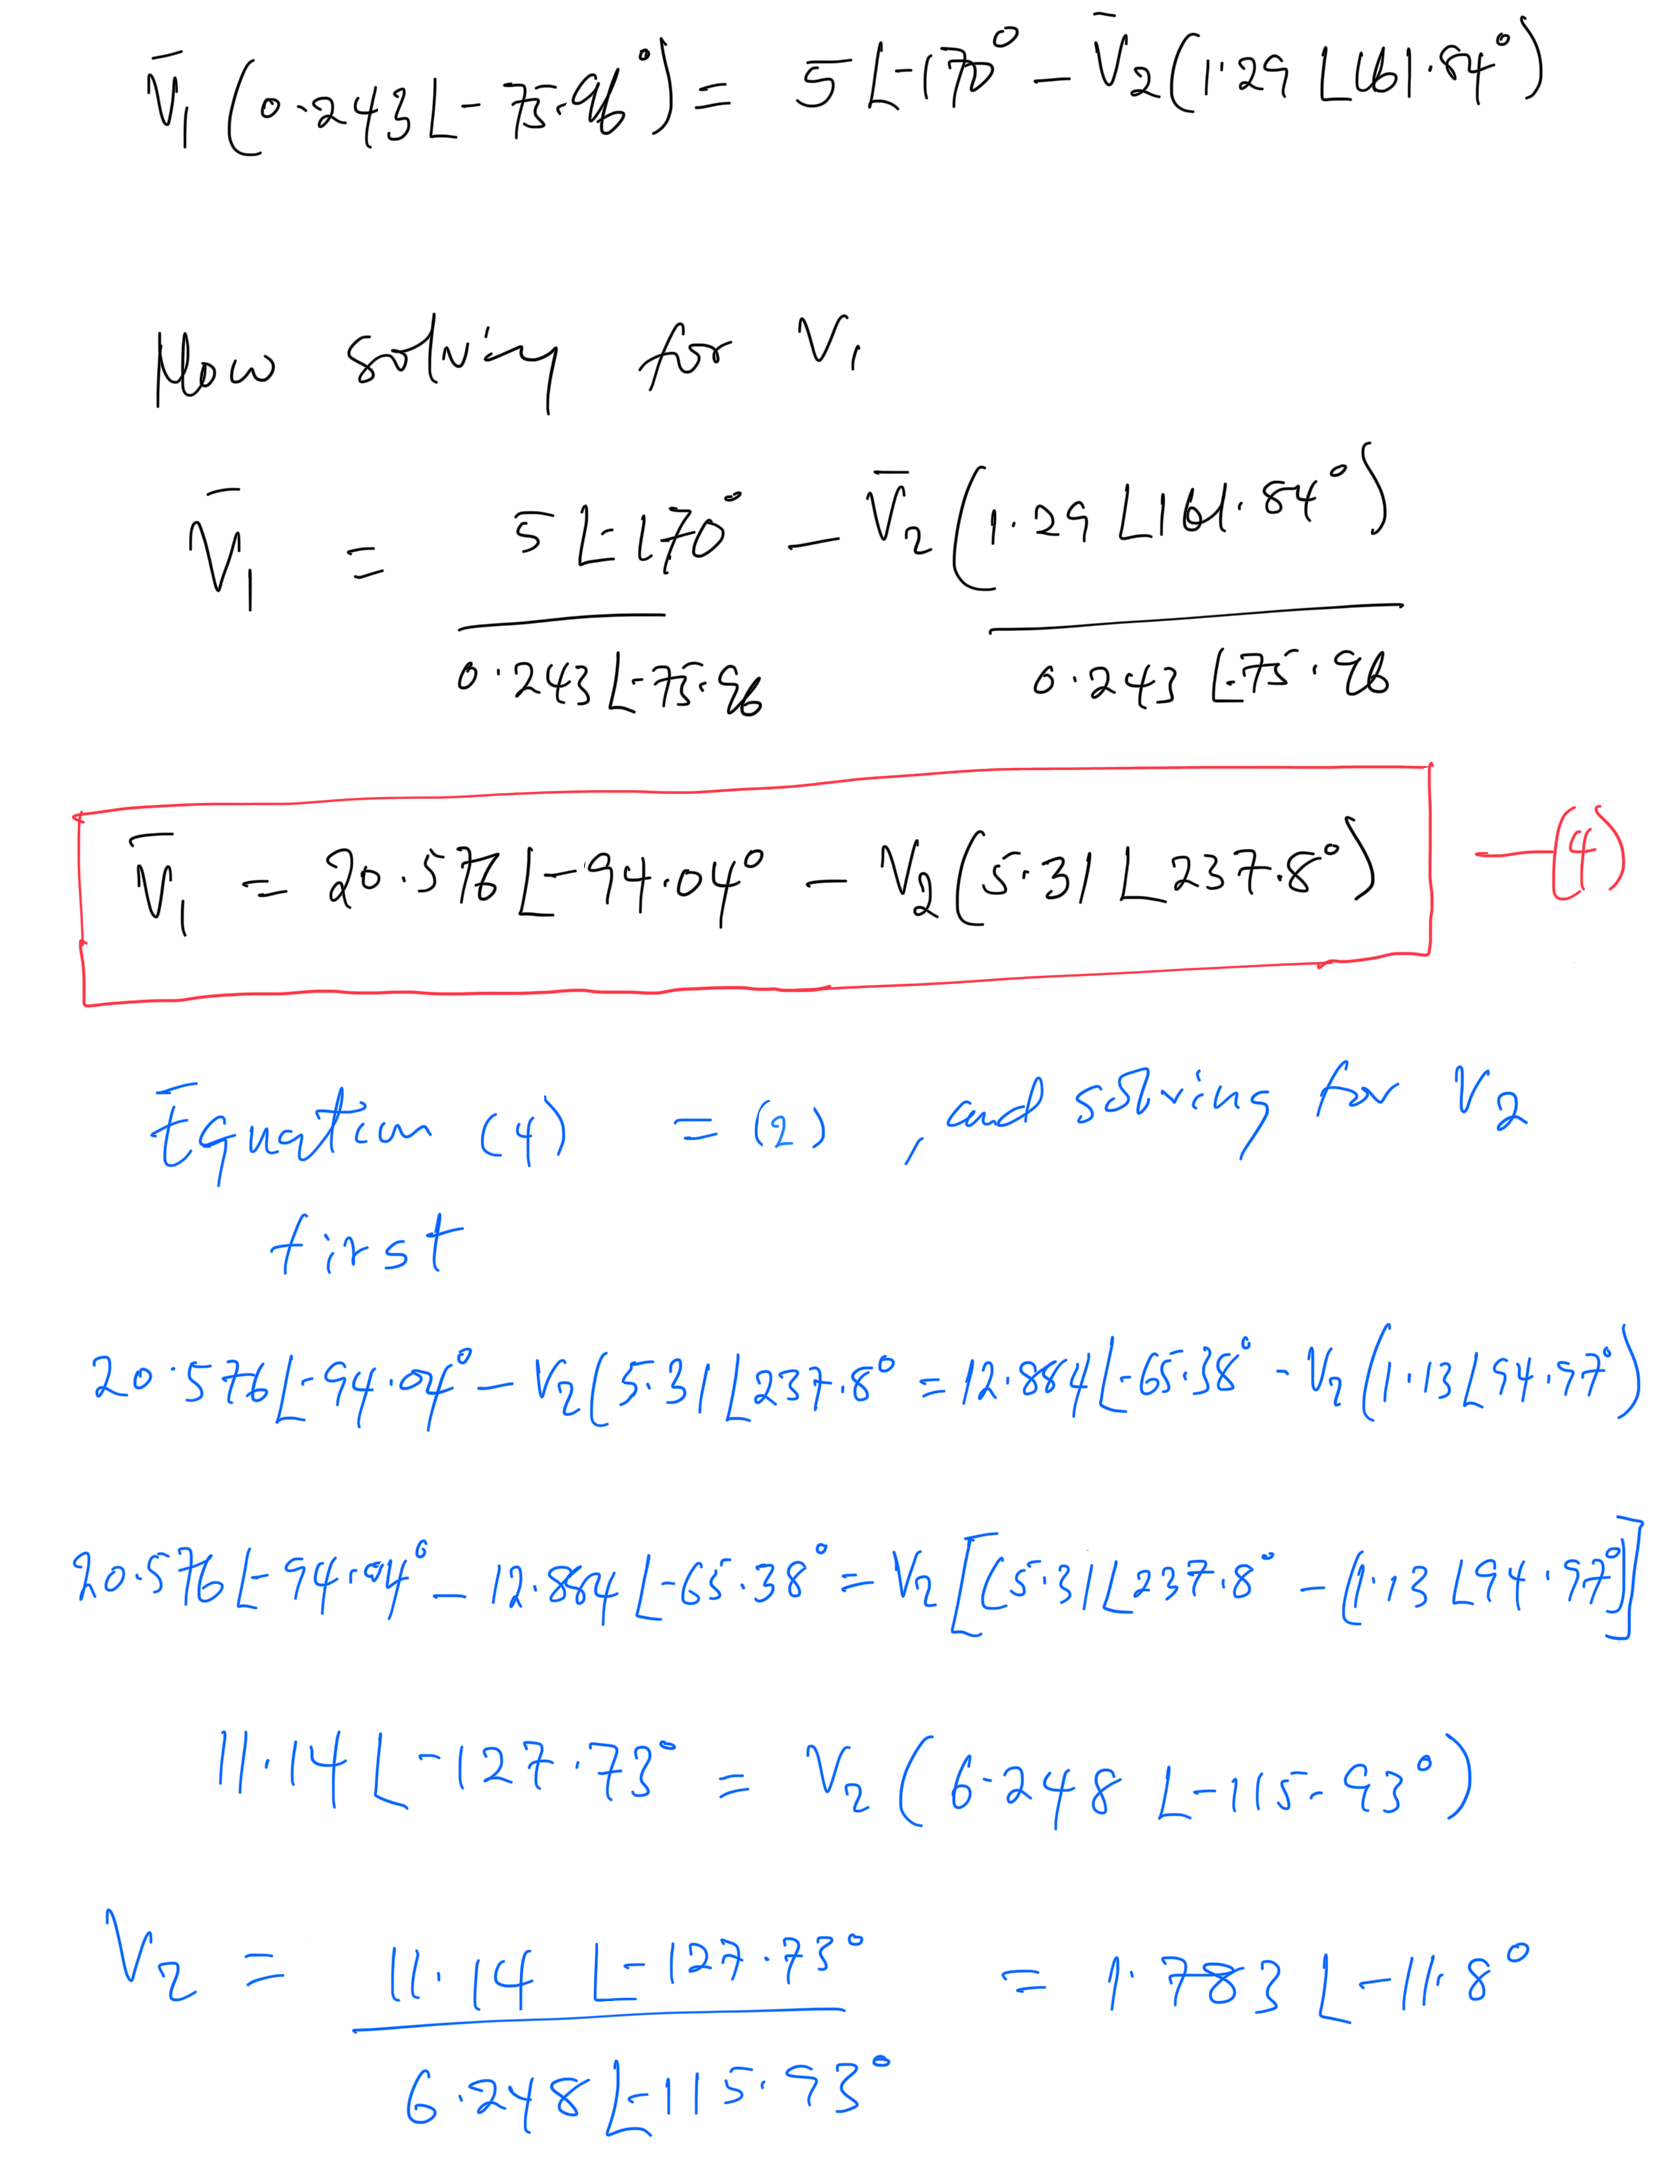 V̄₁ (0.243∠-75.96°) = 5∠-170° - V̄₂(1.29∠161.84°)
Now solving for V₁
V̄₁ = 5∠-170° - V̄₂(1.29∠161.84°)
0.243∠-75.96 0.243∠-75.96
V̄₁ = 20.576∠-94.04° - V₂(5.31∠237.8°) —(4)
Equation (4) = (2), and solving for V₂
first
20.576∠-94.04° - V₂(5.31∠237.8° = 12.884∠-65.38° - V₂(1.13∠94.97°)
20.576∠-94.04° - 12.884∠-65.38° = V₂[(5.31∠237.8° - (1.13∠94.97°]
11.14∠-127.73° = V₂(6.248∠-115.93°)
V₂ = 11.14∠-127.73° = 1.783∠-11.8°
6.248∠-115.93°